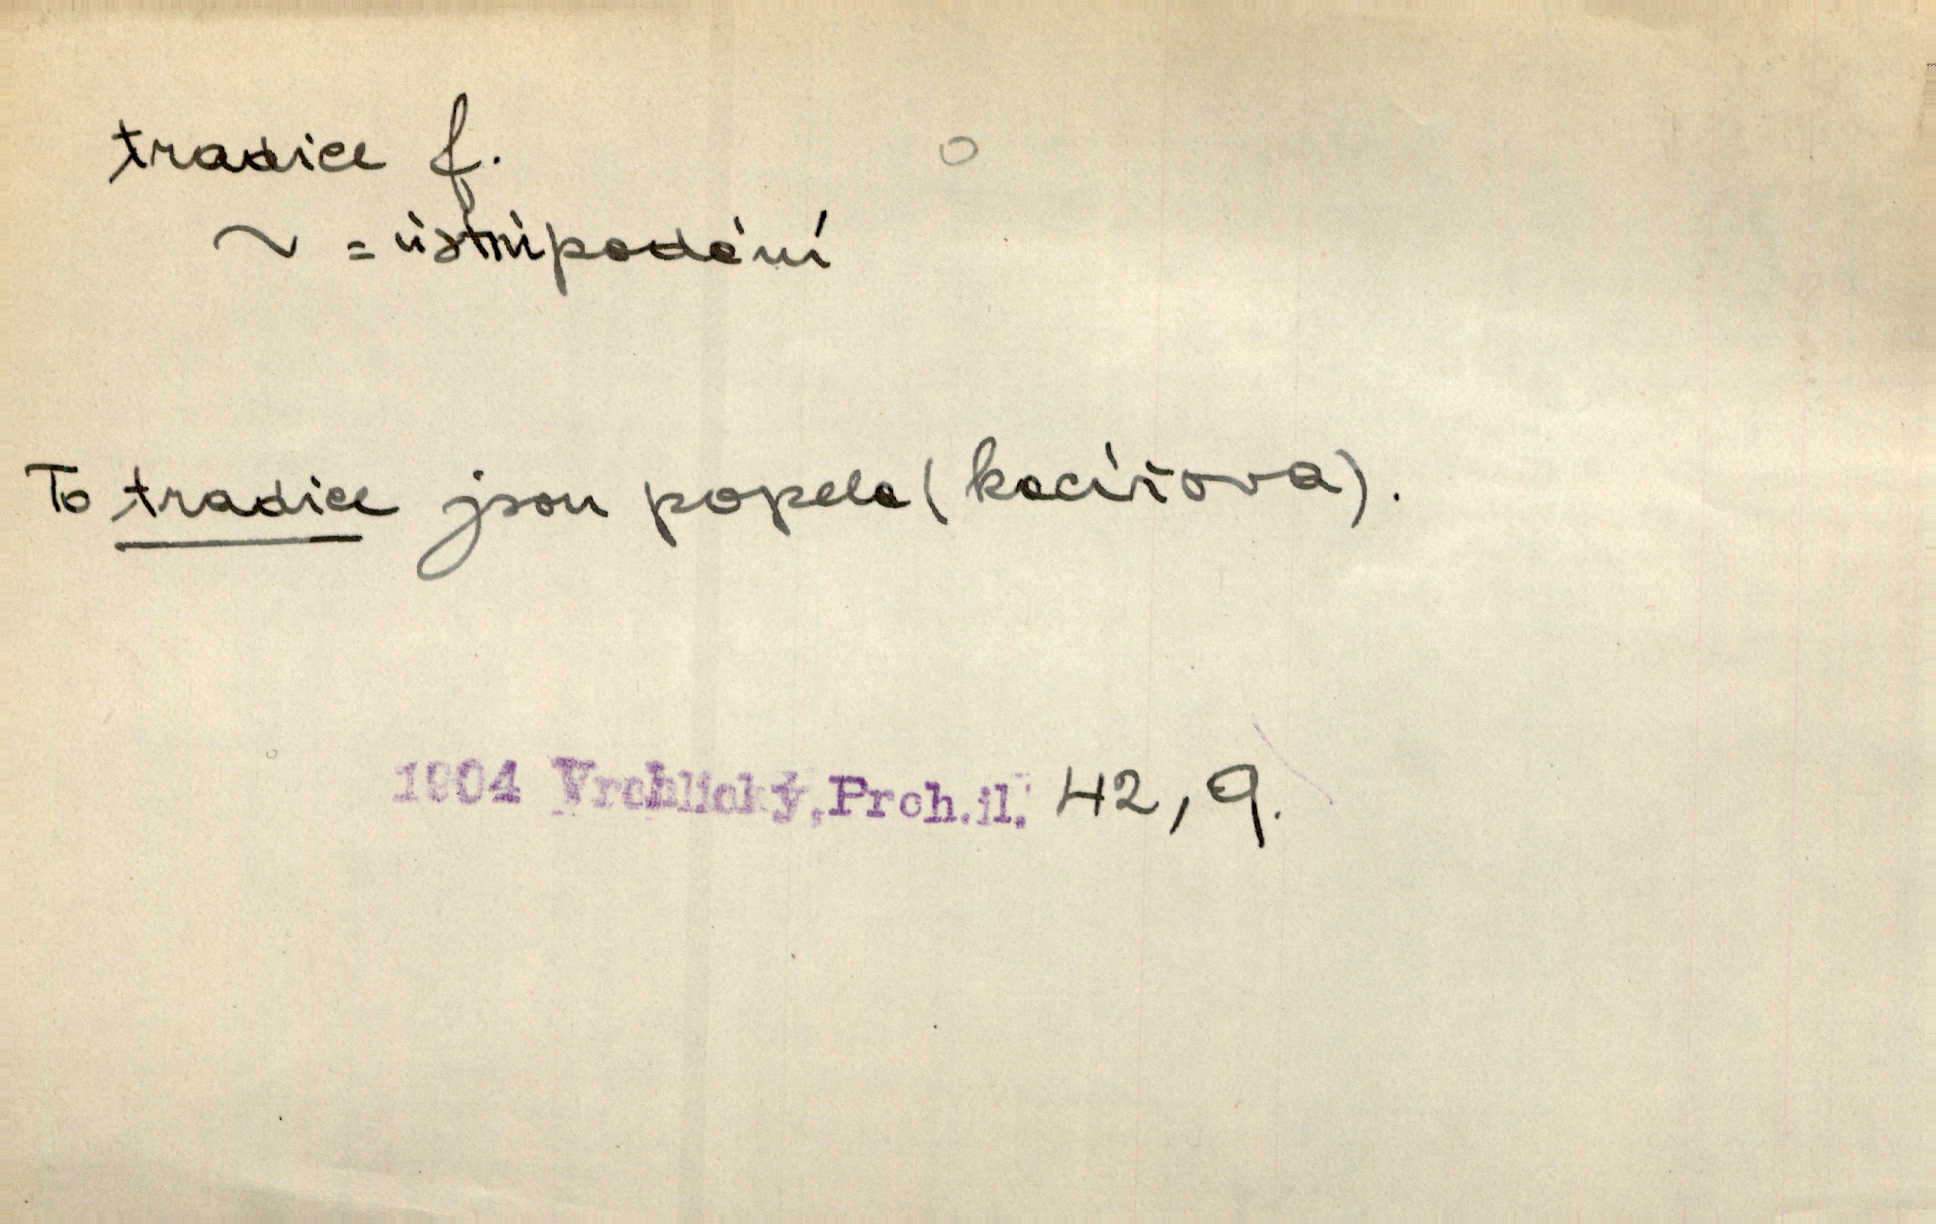 tradice f.
~ = ústní podání
To tradice jsou popele (kacířova).
1904 Vrchlický, Proh.il. 42, 9.